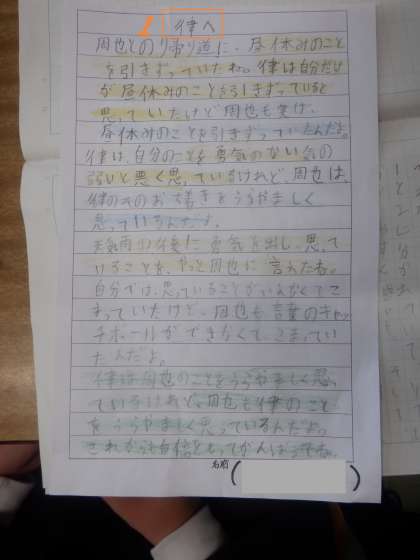 律へ
周也との帰り道に、昼休みのこと
を引きずっていたね。律は自分だけ
が昼休みのことを引きずっていると
思っていたけど周也も実は、
昼休みのことを引きずっていたんだよ。
律は、自分のことを勇気のない気の
弱いと悪く思っているけれど、周也は、
律のそのおだ着きをうらやましく
思っているんだよ。
天気雨の後に勇気を出し、思って
いることを、やっと周也に言えたね。
自分では、思っていることがいえなくてこ
まっていたけど、周也も言葉のキャッ
チボールができなくて、こまってい
たんだよ。
律は周也のことをうらやましく思っ
ているけれど、周也も律のこと
をうらやましく思っているんだよ。
これからも自信をもってがんばってね。
名前